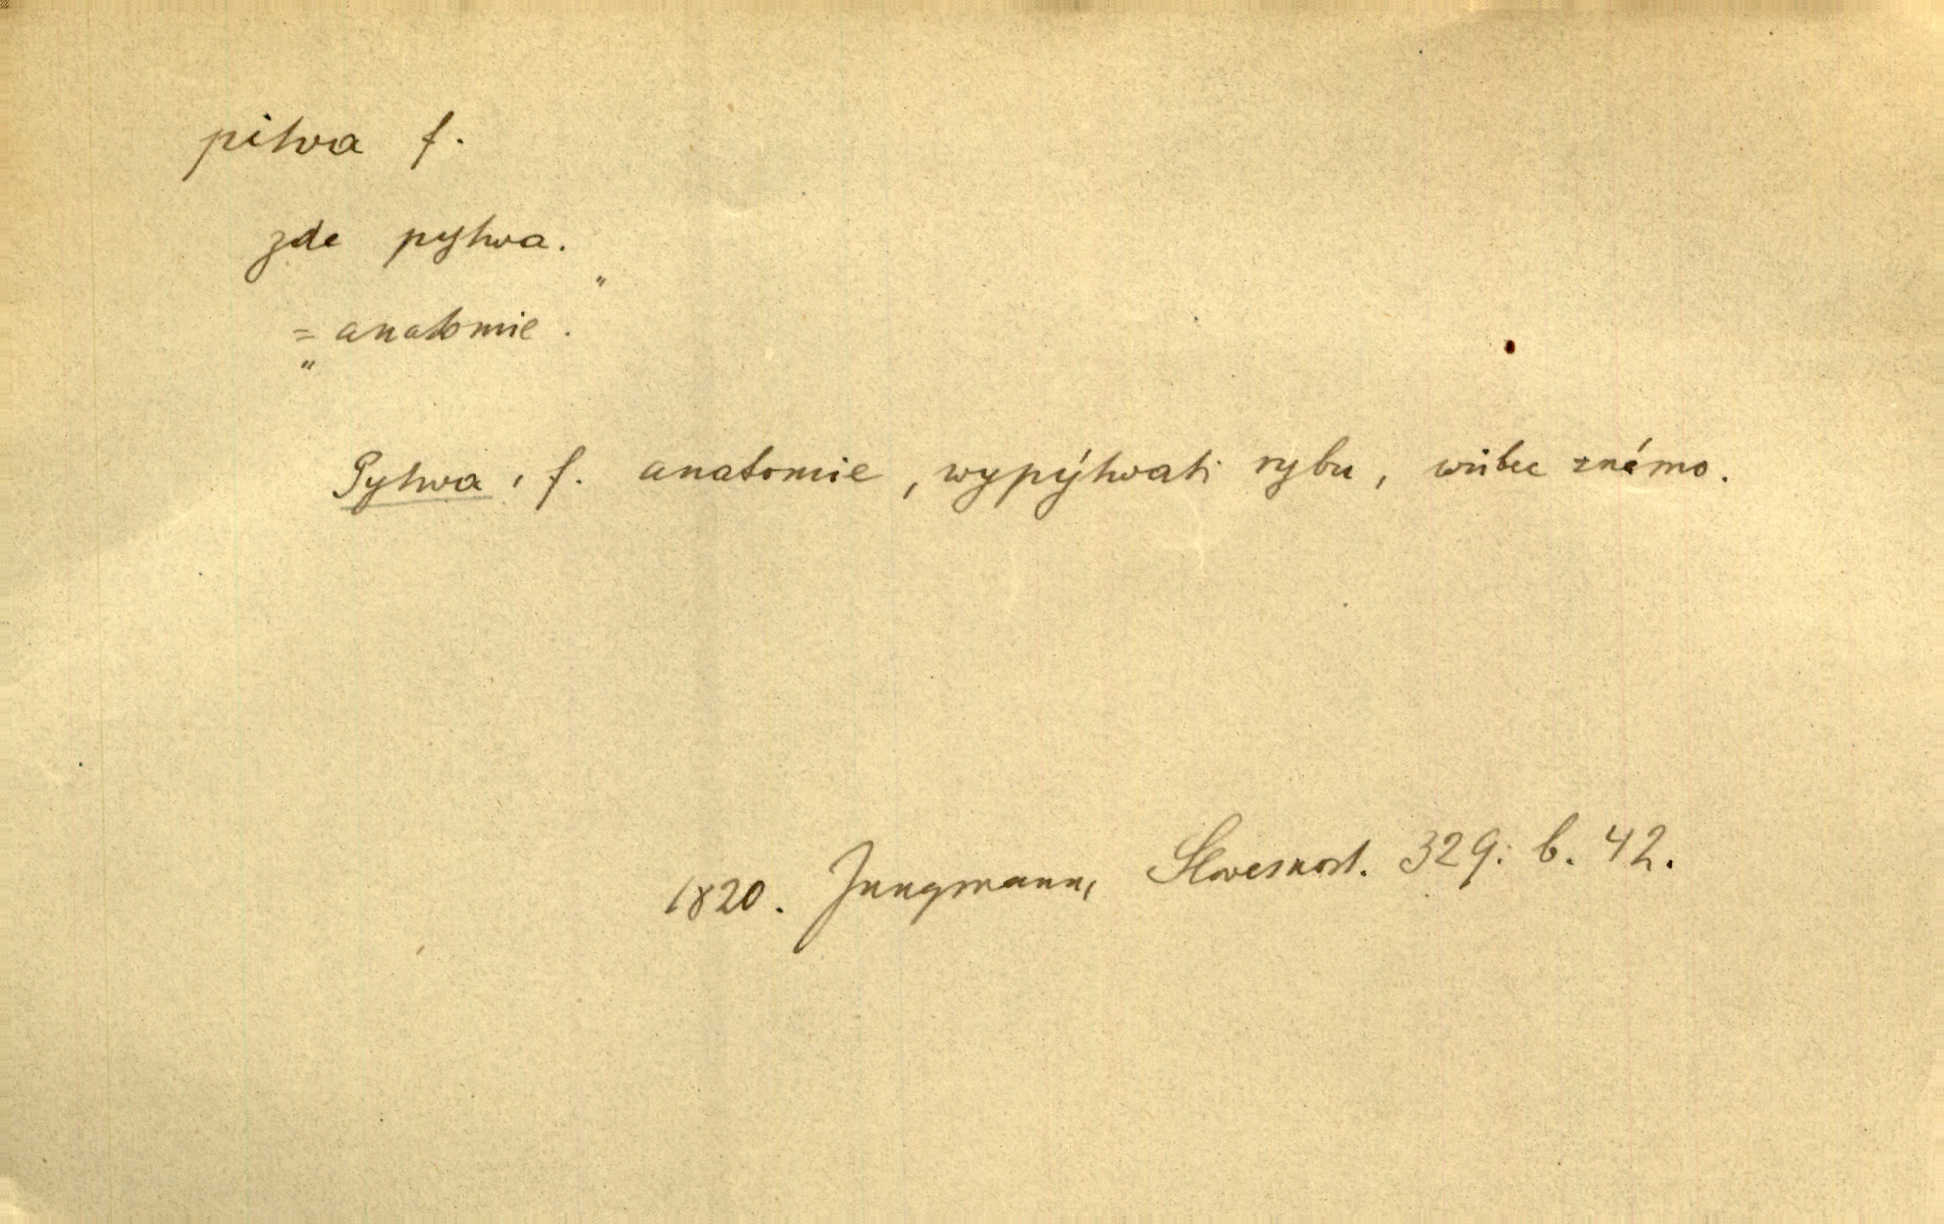 pitva f.
zde pytwa.
„= anatomie."
Pytwa, f. anatomie, wypýtwati rybu, wůbec známo.
1820. Jungmann, Slowesnost. 329. b. 42.